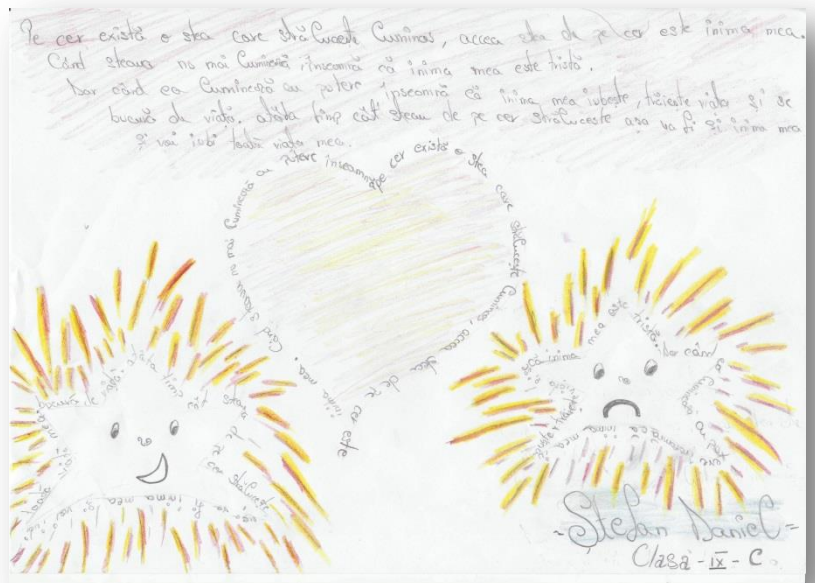 Pe cer există o stea care străluceste luminos, accea stea de pe cer este inima mea.
Când steaua nu mai luminează, înseamnă că inima mea este tristă.
Dar când ea luminează cu putere înseamnă că inima mea iubește, trăiește viața și se
bucură de viață. atâta timp cât steau de pe cer străluceste așa va fi și inima mea
și voi iubi toată viața mea.
cer există o stea care străluceste luminos, accea stea de pe cer este
inima mea. Cand steaua nu mai luminează cu putere înseamnă
bucură de viață. atâta timp cât steau
de pe cer străluceste
inima mea
inima mea este tristă. Dar când
ea luminează
inima mea
-Ștefan Daniel-
Clasa - IX - C